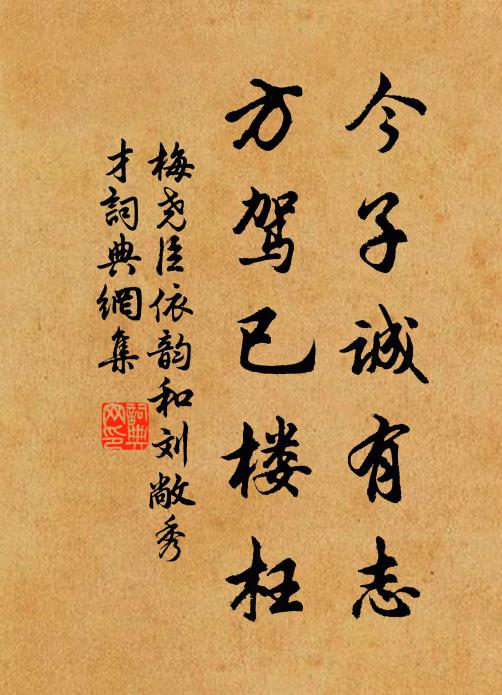 今子诚有志
方驾已楼枉
梅尧臣依韵和刘敞秀
才詞典網集
詞典网印